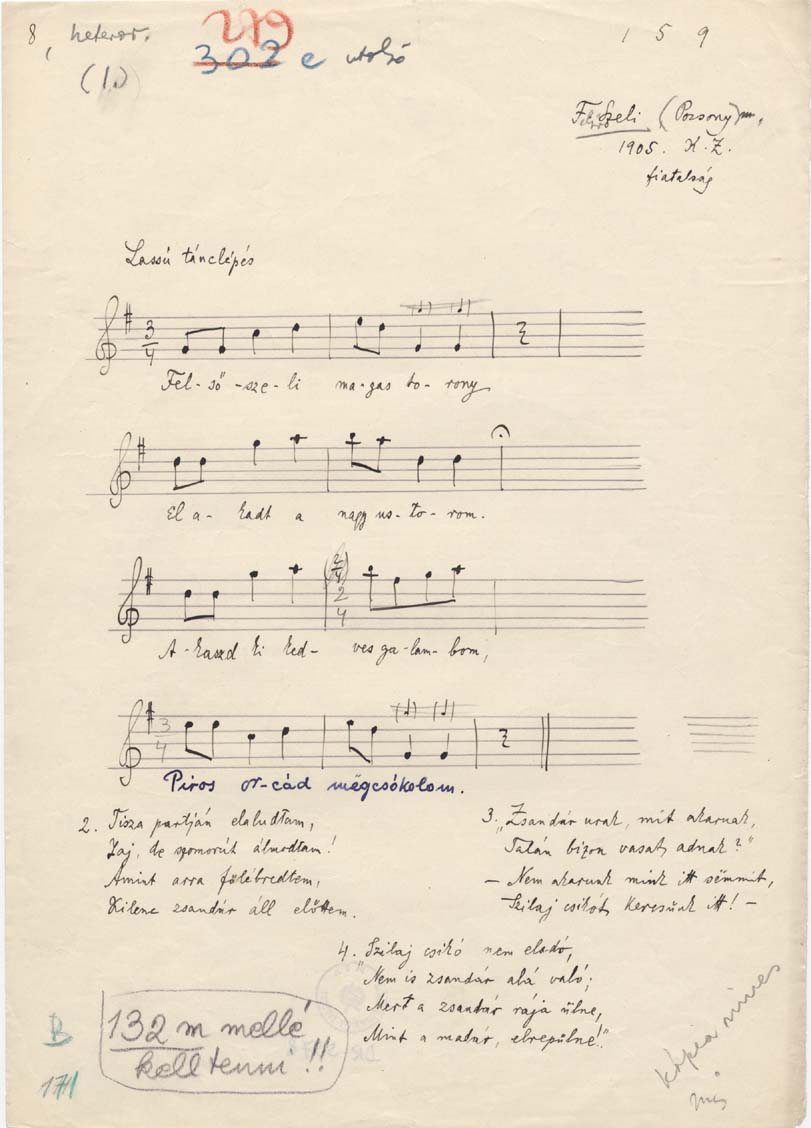 8, heterom.
(1.)
279
302 e utolsó
1 5 9
Felsőszeli (Pozsony) m.
1905. K. Z.
fiatalság
Lassú tánclépés
3/4
Fel-ső-sze-li ma-gas to-rony
El a-kadt a nagy us-to-rom.
2/4
A-kaszd ki ked-ves ga-lam-bom,
3/4
Piros or-cád mëgcsókolom.
2. Tisza partján elaludtam,
Jaj, de szomorút álmodtam!
Amint arra fölébredtem,
Kilenc zsandár áll előttem.
3. „Zsandár urak, mit akarnak,
Talán bizon vasat adnak?"
— Nem akarunk mink itt sëmmit,
Szilaj csikót keresünk itt! —
4. „Szilaj csikó nem eladó,
Nem is zsandár alá való;
Mert a zsandár rája ülne,
Mint a madár, elrepülne!"
132 m mellé
kell tenni!!
B
171
kópia nincs